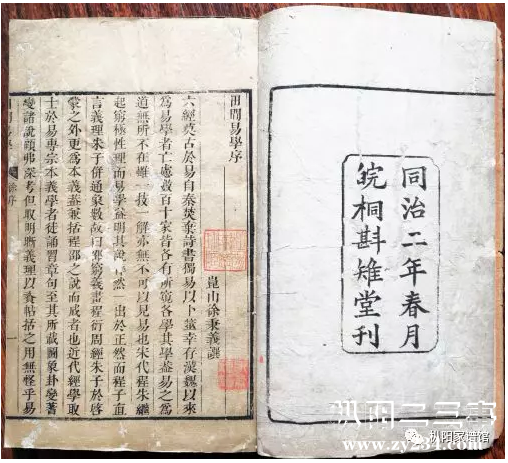 同治二年春月
皖桐斟雉堂刊
田間易學序
崑山徐秉義譔
六經莫古於易自秦焚詩書獨易以卜筮幸存漢魏以來
為易學者亡慮數百十家皆各有所窺各學其學蓋易之為
道無所不在雖一技一解亦無不可以見易也宋代程朱繼
起窮極性理而易學益明其然一出於正然而程子直
言義理朱子併通象數故曰邵窮羲畫程衍周經朱子於啓
蒙之外更為本義蓋兼括程邵之說而成者也近代經學取
士於易專宗本義學者徒誦習章句至其所載圖象卦變蓍
變諸說顧弗深考但取明晰義理以資帖括之用無怪乎易
田間易學
徐序
一
枞阳二三事
www.zy234.com
枞阳家谱馆